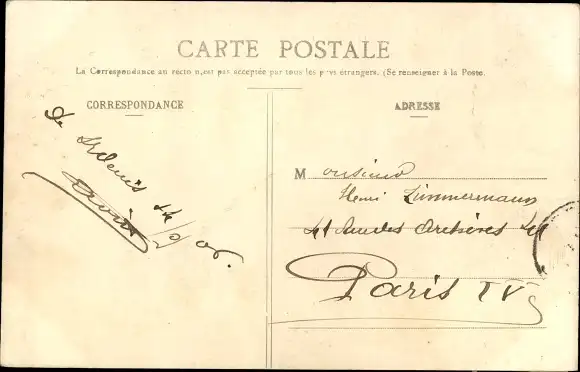 CARTE POSTALE
La Correspondance au recto n,est pas acceptée par tous les pays étrangers. (Se renseigner à la Poste.
CORRESPONDANCE
ADRESSE
De
St Denis
Monsieur
Henri Zimmermann
Paris IV